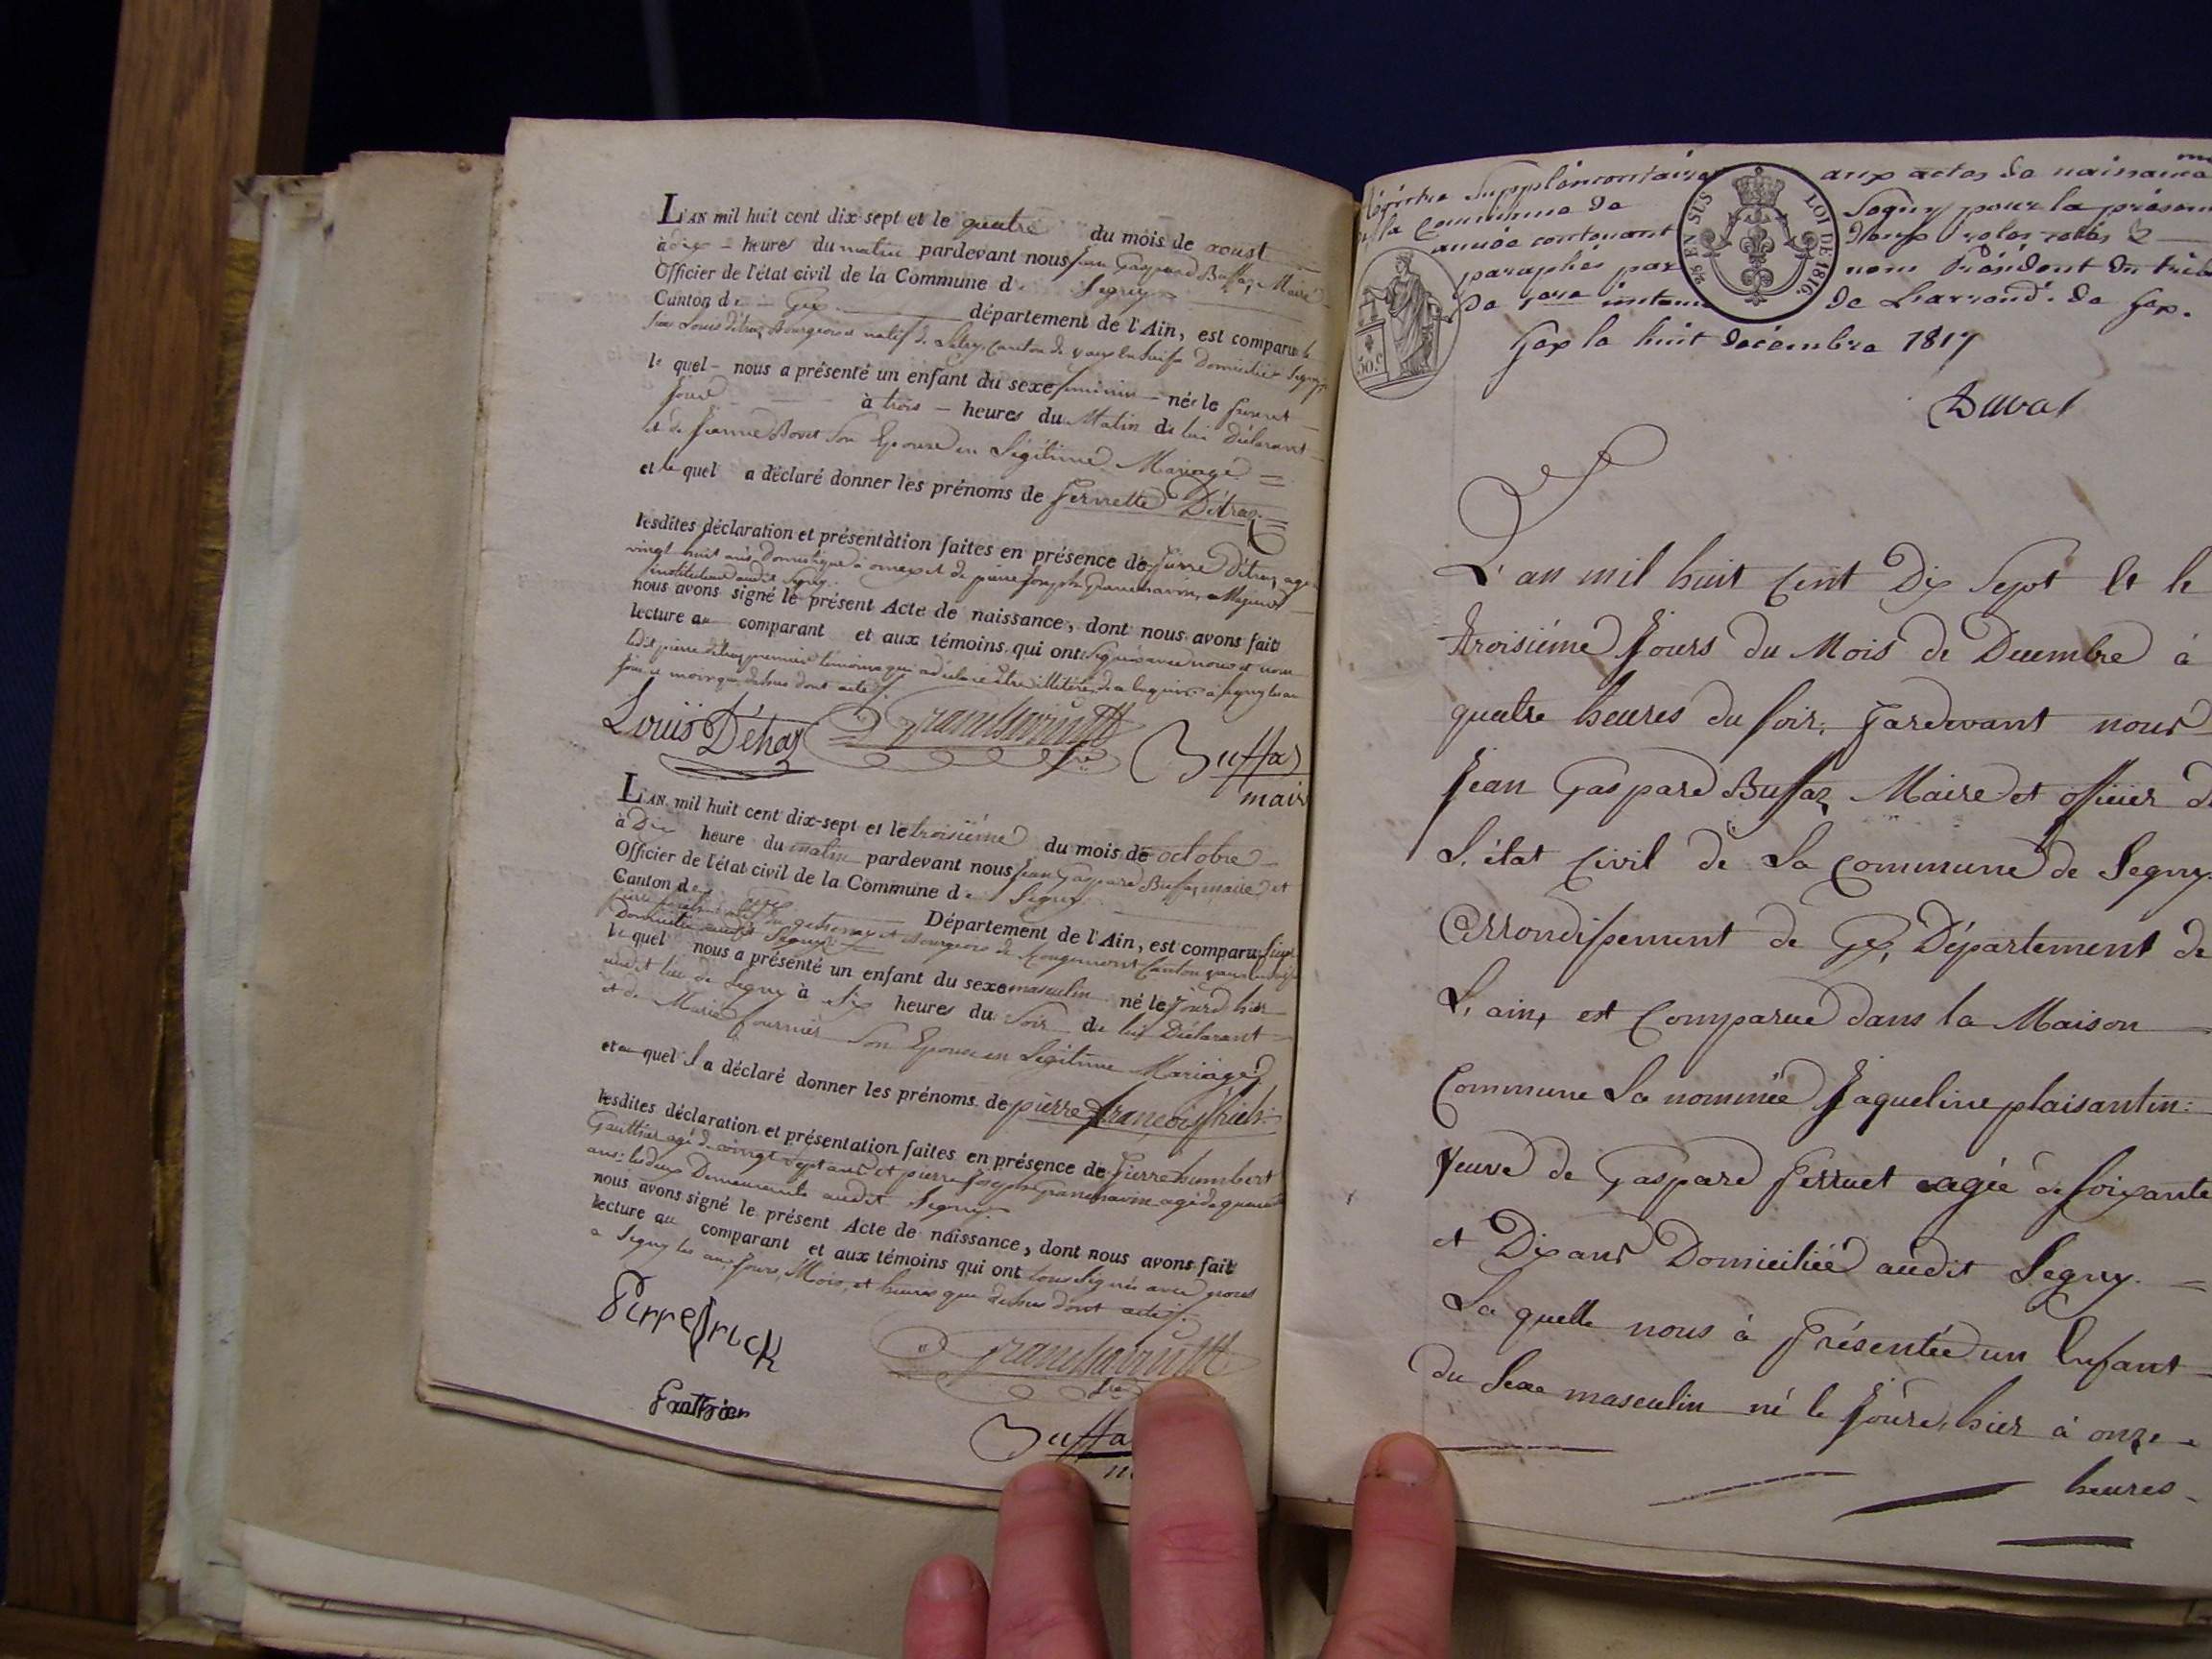 L'AN mil huit cent dix sept et le quatre du mois de aoust
à dix heures du matin pardevant nous Jean Gaspard Buffaz, Maire
Officier de l'état civil de la Commune de Segny
Canton de Gex département de l'Ain, est comparu le
Louis Détraz Bourgeois et natif de canton de vaux en Suisse Domicilié à Segny
le quel nous a présenté un enfant du sexe féminin née le présent
jour à trois heures du Matin de lui Déclarant
et de Jeanne Bovet Son Epouse en Légitime Mariage =
et le quel a déclaré donner les prénoms de Pernette Détraz =
lesdites déclaration et présentation faites en présence de Pierre Détraz agé
vingt huit ans Domestique à ornex et de pierre Joseph Grandsavin, Majeur
instituteur audit Segny
nous avons signé le présent Acte de naissance, dont nous avons fait
lecture au comparant et aux témoins qui ont Signés avec nous et non
ledit pierre détraz premier témoins qui a déclaré être illitéré de a Segny les an
jour que dessus dont acte
Louïs Détraz Grandsavin Buffaz
maire
L'AN mil huit cent dix-sept et le troisième du mois de octobre
à Dix heure du matin pardevant nous Jean Gaspard Buffaz maire et
Officier de l'état civil de la Commune de Segny
Canton de Gex Département de l'Ain, est comparu Sieur
pierre natif du gessenay et Bourgeois de Rougemont Canton vaux en
Domicilié audit Segny
le quel nous a présenté un enfant du sexe masculin né le jourd hier
audit lieu de Segny à Six heures du Soir de lui Déclarant
et de Marie fournier Son Epouse en Légitime Mariage
et le quel a déclaré donner les prénoms de pierre françois
lesdites déclaration et présentation faites en présence de Pierre humbert
Gauthier agé de vingt sept ans et pierre Joseph Grandsavin agé de
ans: les deux Demeurants audit Segny
nous avons signé le présent Acte de naissance, dont nous avons fait
lecture au comparant et aux témoins qui ont tous Signés avec nous
a Segny les an, Jours, Mois, et heures que dessus dont acte
Pierre
Grandsavin
Gauthier
Buffa
Régistre Supplémentaire aux actes de naissance
de la Commune de Segny pour la présente
année contenant deux roles cotés &
paraphés par nous Président du trib
de 1ere instance de L'arrond.t de Gex.
Gex le huit décembre 1817
Duval
TS EN SUS LOI DE 1816.
50.c
L'an mil huit Cent Dix Sept et le
troisième Jours du Mois de Decembre à
quatre heures du soir, Pardevant nous
Jean Gaspard Buffaz Maire et officier de
L'état Civil de La Commune de Segny
Arrondissement de Gex, Département de
L'ain, est Comparue dans la Maison
Commune La nommée Jaqueline plaisantin:
Veuve de Gaspard Perruet agée de soixante
et Dix ans Domiciliée audit Segny. =
La quelle nous à Présentée un Enfant
du Sexe masculin né le Jourd, hier à onze
heures